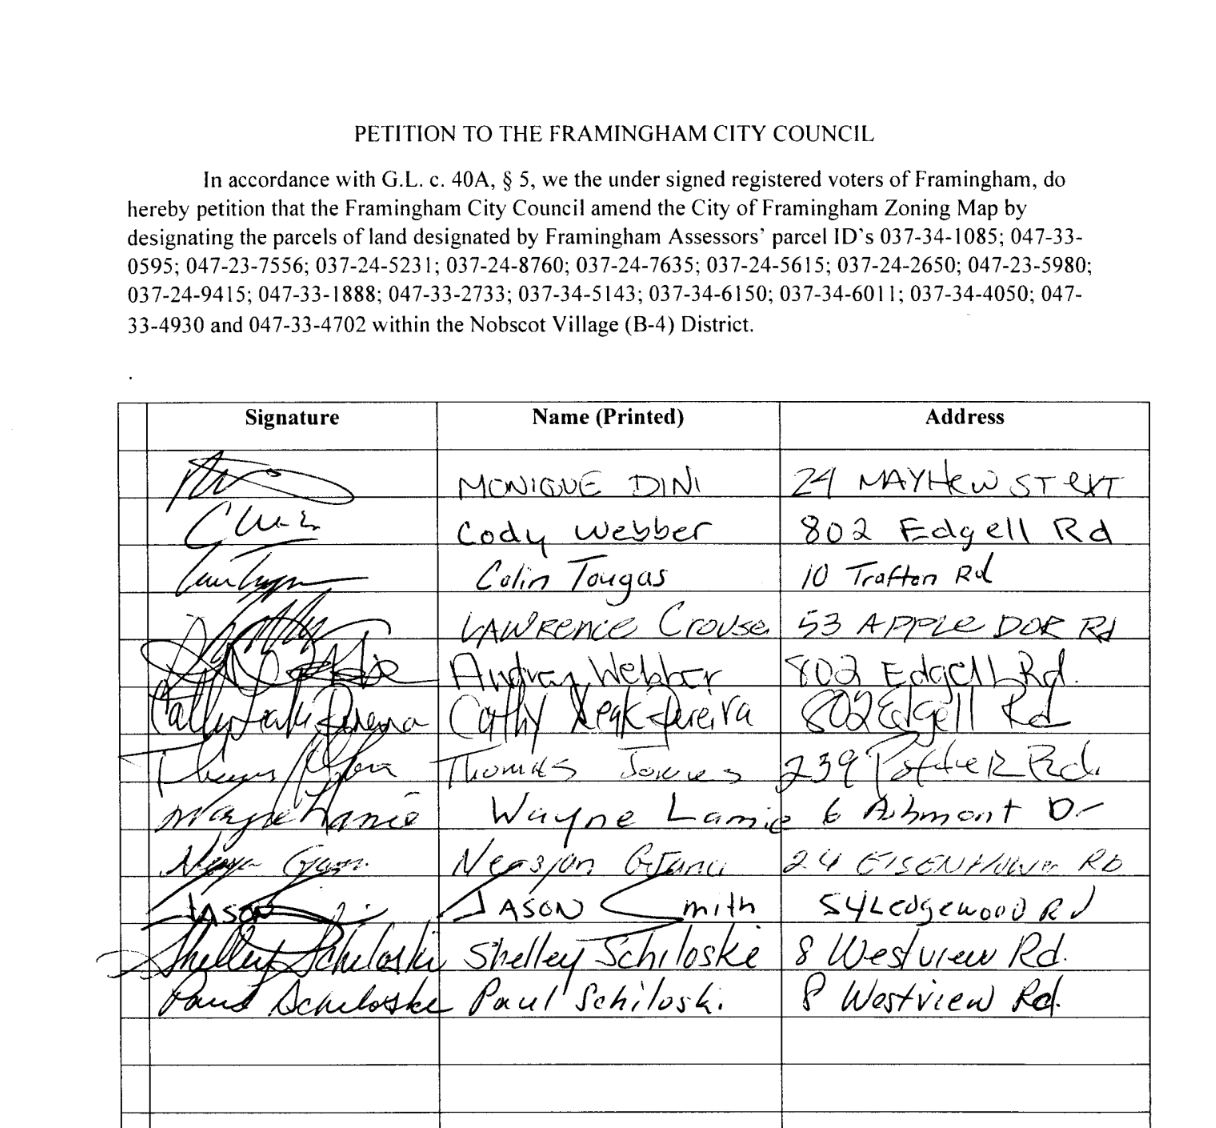 PETITION TO THE FRAMINGHAM CITY COUNCIL
In accordance with G.L. c. 40A, § 5, we the under signed registered voters of Framingham, do
hereby petition that the Framingham City Council amend the City of Framingham Zoning Map by
designating the parcels of land designated by Framingham Assessors' parcel ID's 037-34-1085; 047-33-
0595; 047-23-7556; 037-24-5231; 037-24-8760; 037-24-7635; 037-24-5615; 037-24-2650; 047-23-5980;
037-24-9415; 047-33-1888; 047-33-2733; 037-34-5143; 037-34-6150; 037-34-6011; 037-34-4050; 047-
33-4930 and 047-33-4702 within the Nobscot Village (B-4) District.
Signature Name (Printed) Address
MONIQUE DINI 24 MAYHEW ST EXT
Cody Webber 802 Edgell Rd
Colin Tougas 10 Trafton Rd
LAWRENCE Crouse 53 APPLE DOR Rd
Audrey Webber 802 Edgell Rd.
Cathy 802 Edgell Rd
Thomas 239 Potter Rd.
Wayne Lamie Wayne Lamie 6 Ashmont Dr
24 EISENHOWER RD
JASON JASON Smith 54 Ledgewood Rd
Shelley Schiloski Shelley Schiloske 8 Westview Rd.
Paul Schiloske Paul Schiloski. 8 Westview Rd.